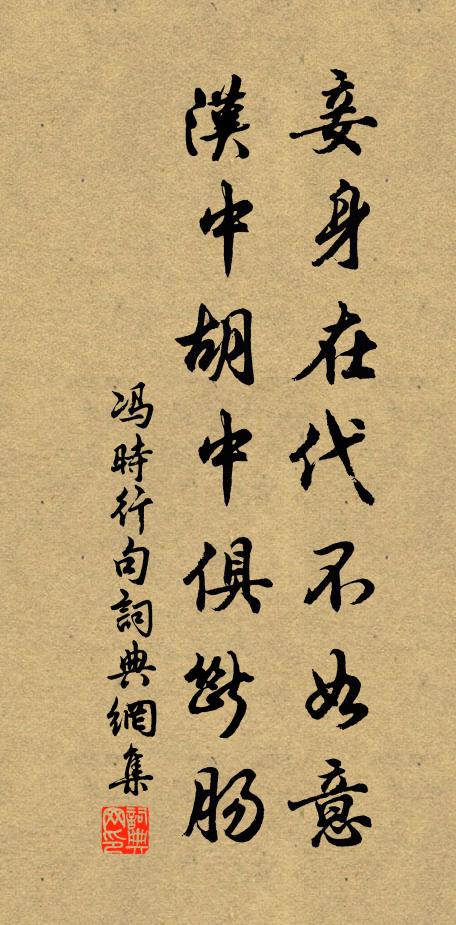 妾身在代不如意
漢中胡中俱斷腸
馮時行句詞典網集
詞典网印